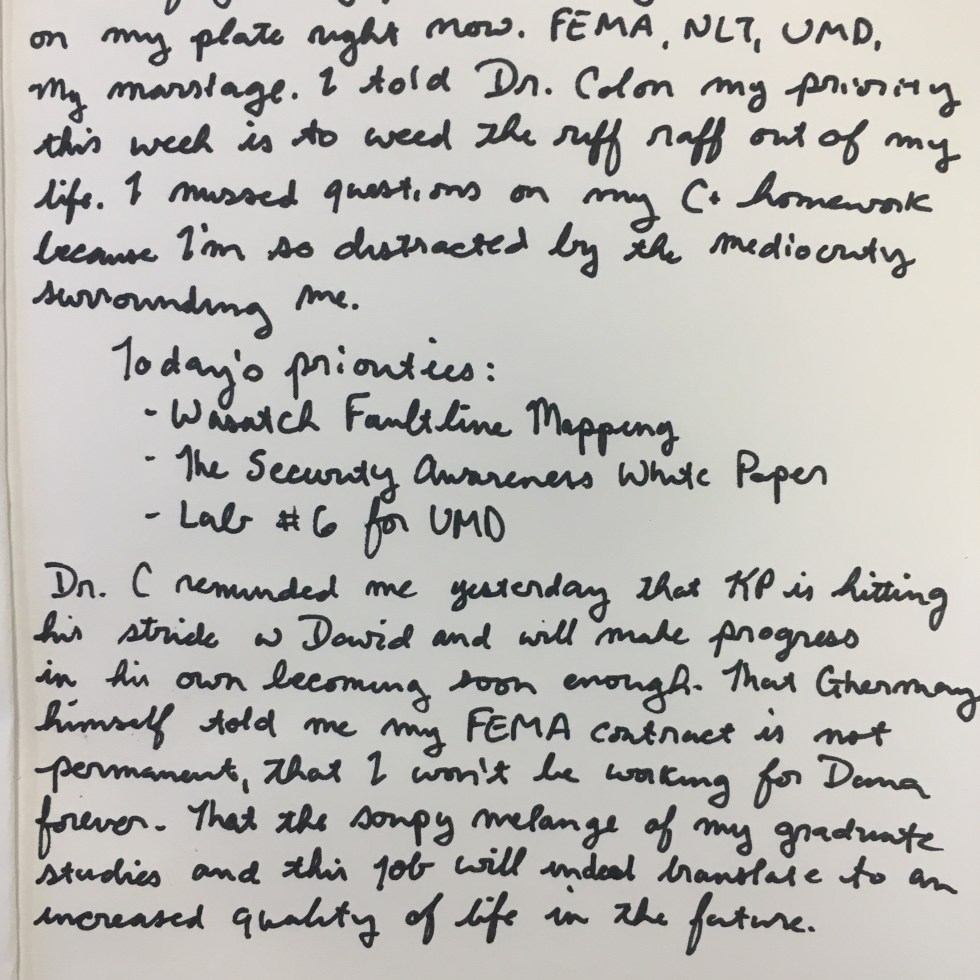 on my plate right now. FEMA, NLT, UMD,
my marriage. I told Dr. Colon my priority
this week is to weed the riff raff out of my
life. I missed questions on my C+ homework
because I'm so distracted by the mediocrity
surrounding me.
Today's priorities:
- Wasatch Faultline Mapping
- The Security Awareness White Paper
- Lab #6 for UMD
Dr. C reminded me yesterday that KP is hitting
his stride w David and will make progress
in his own becoming soon enough. That Ghermay
himself told me my FEMA contract is not
permanent, that I won't be working for Dana
forever. That the soupy melange of my graduate
studies and this job will indeed translate to an
increased quality of life in the future.